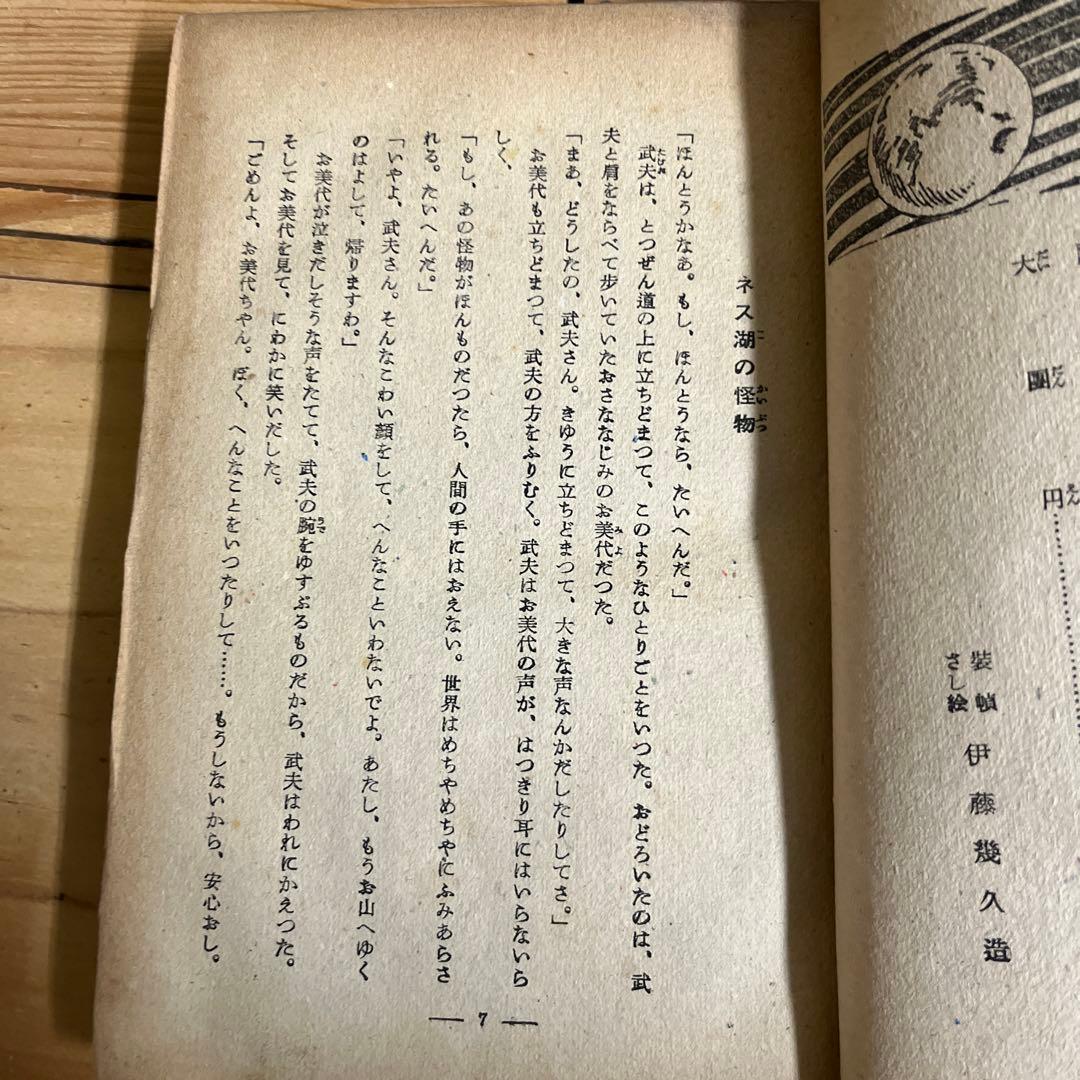 大
團
円
だ
だん
えん
裝幀
さし絵
伊藤幾久造
ネス湖の怪物
こ
かいぶつ
「ほんとうかなあ。もし、ほんとうなら、たいへんだ。」
武夫は、とつぜん道の上に立ちどまつて、このようなひとりごとをいつた。おどろいたのは、武
たけお
夫と肩をならべて歩いていたおさななじみのお美代だつた。
みよ
「まあ、どうしたの、武夫さん。きゆうに立ちどまつて、大きな声なんかだしたりしてさ。」
お美代も立ちどまつて、武夫の方をふりむく。武夫はお美代の声が、はつきり耳にはいらないら
しく、
「もし、あの怪物がほんものだつたら、人間の手にはおえない。世界はめちやめちやにふみあらさ
れる。たいへんだ。」
「いやよ、武夫さん。そんなこわい顔をして、へんなこといわないでよ。あたし、もうお山へゆく
のはよして、帰りますわ。」
お美代が泣きだしそうな声をたてて、武夫の腕をゆすぶるものだから、武夫はわれにかえつた。
うで
そしてお美代を見て、にわかに笑いだした。
「ごめんよ、お美代ちやん。ぼく、へんなことをいつたりして……。もうしないから、安心おし。
— 7 —